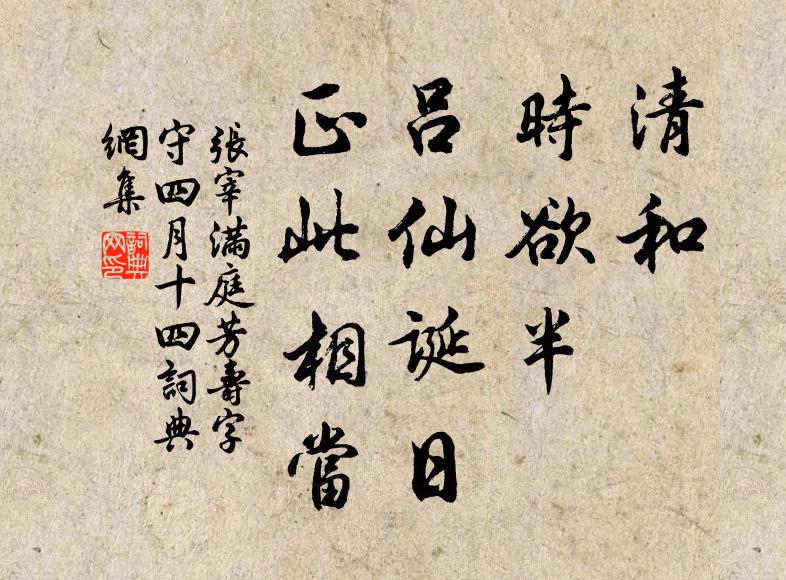 清和
時欲半
呂仙誕日
正此相當
張宰滿庭芳壽字
守四月十四詞典
網集
詞典
网印